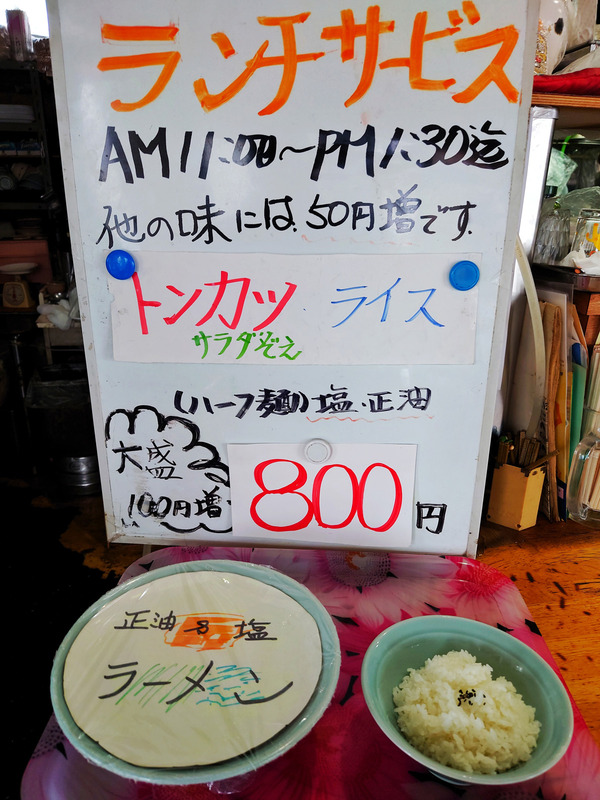 ランチサービス
AM11:00～PM1:30迄
他の味には、50円増です。
トンカツ ライス
サラダぞえ
(ハーフ麺)塩・正油
大盛
100円増
800円
正油 & 塩
ラーメン